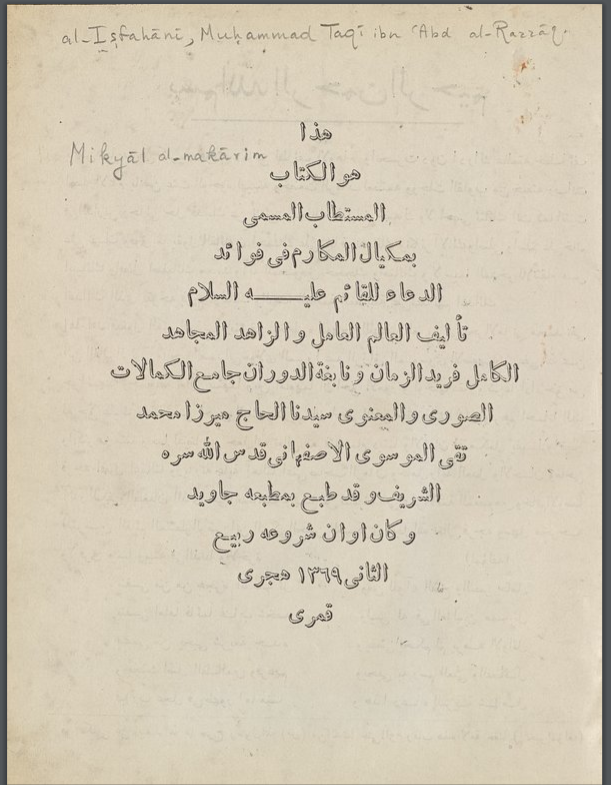 al-Iṣfahānī, Muḥammad Taqī ibn ʻAbd al-Razzāq.
هذا
Mikyāl al-makārim
هو الكتاب
المستطاب المسمى
بمكيال المكارم فى فوائد
الدعاء للقائم عليــــــه السلام
تأليف العالم العامل والزاهد المجاهد
الكامل فريد الزمان ونابغة الدوران جامع الكمالات
الصورى والمعنوى سيدنا الحاج ميرزا محمد
تقى الموسوى الاصفهانى قدس الله سره
الشريف وقد طبع بمطبعه جاويد
وكان اوان شروعه ربيع
الثانى ١٣٦٩ هجرى
قمرى